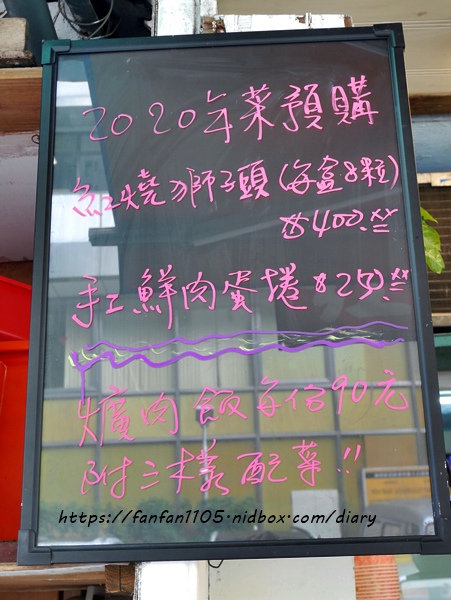 2020年菜預購
紅燒獅子頭(每盒8粒)
$400.
手工鮮肉蛋捲 $250.
爌肉飯每份90元
附三樣配菜!!
https://fanfan1105.nidbox.com/diary